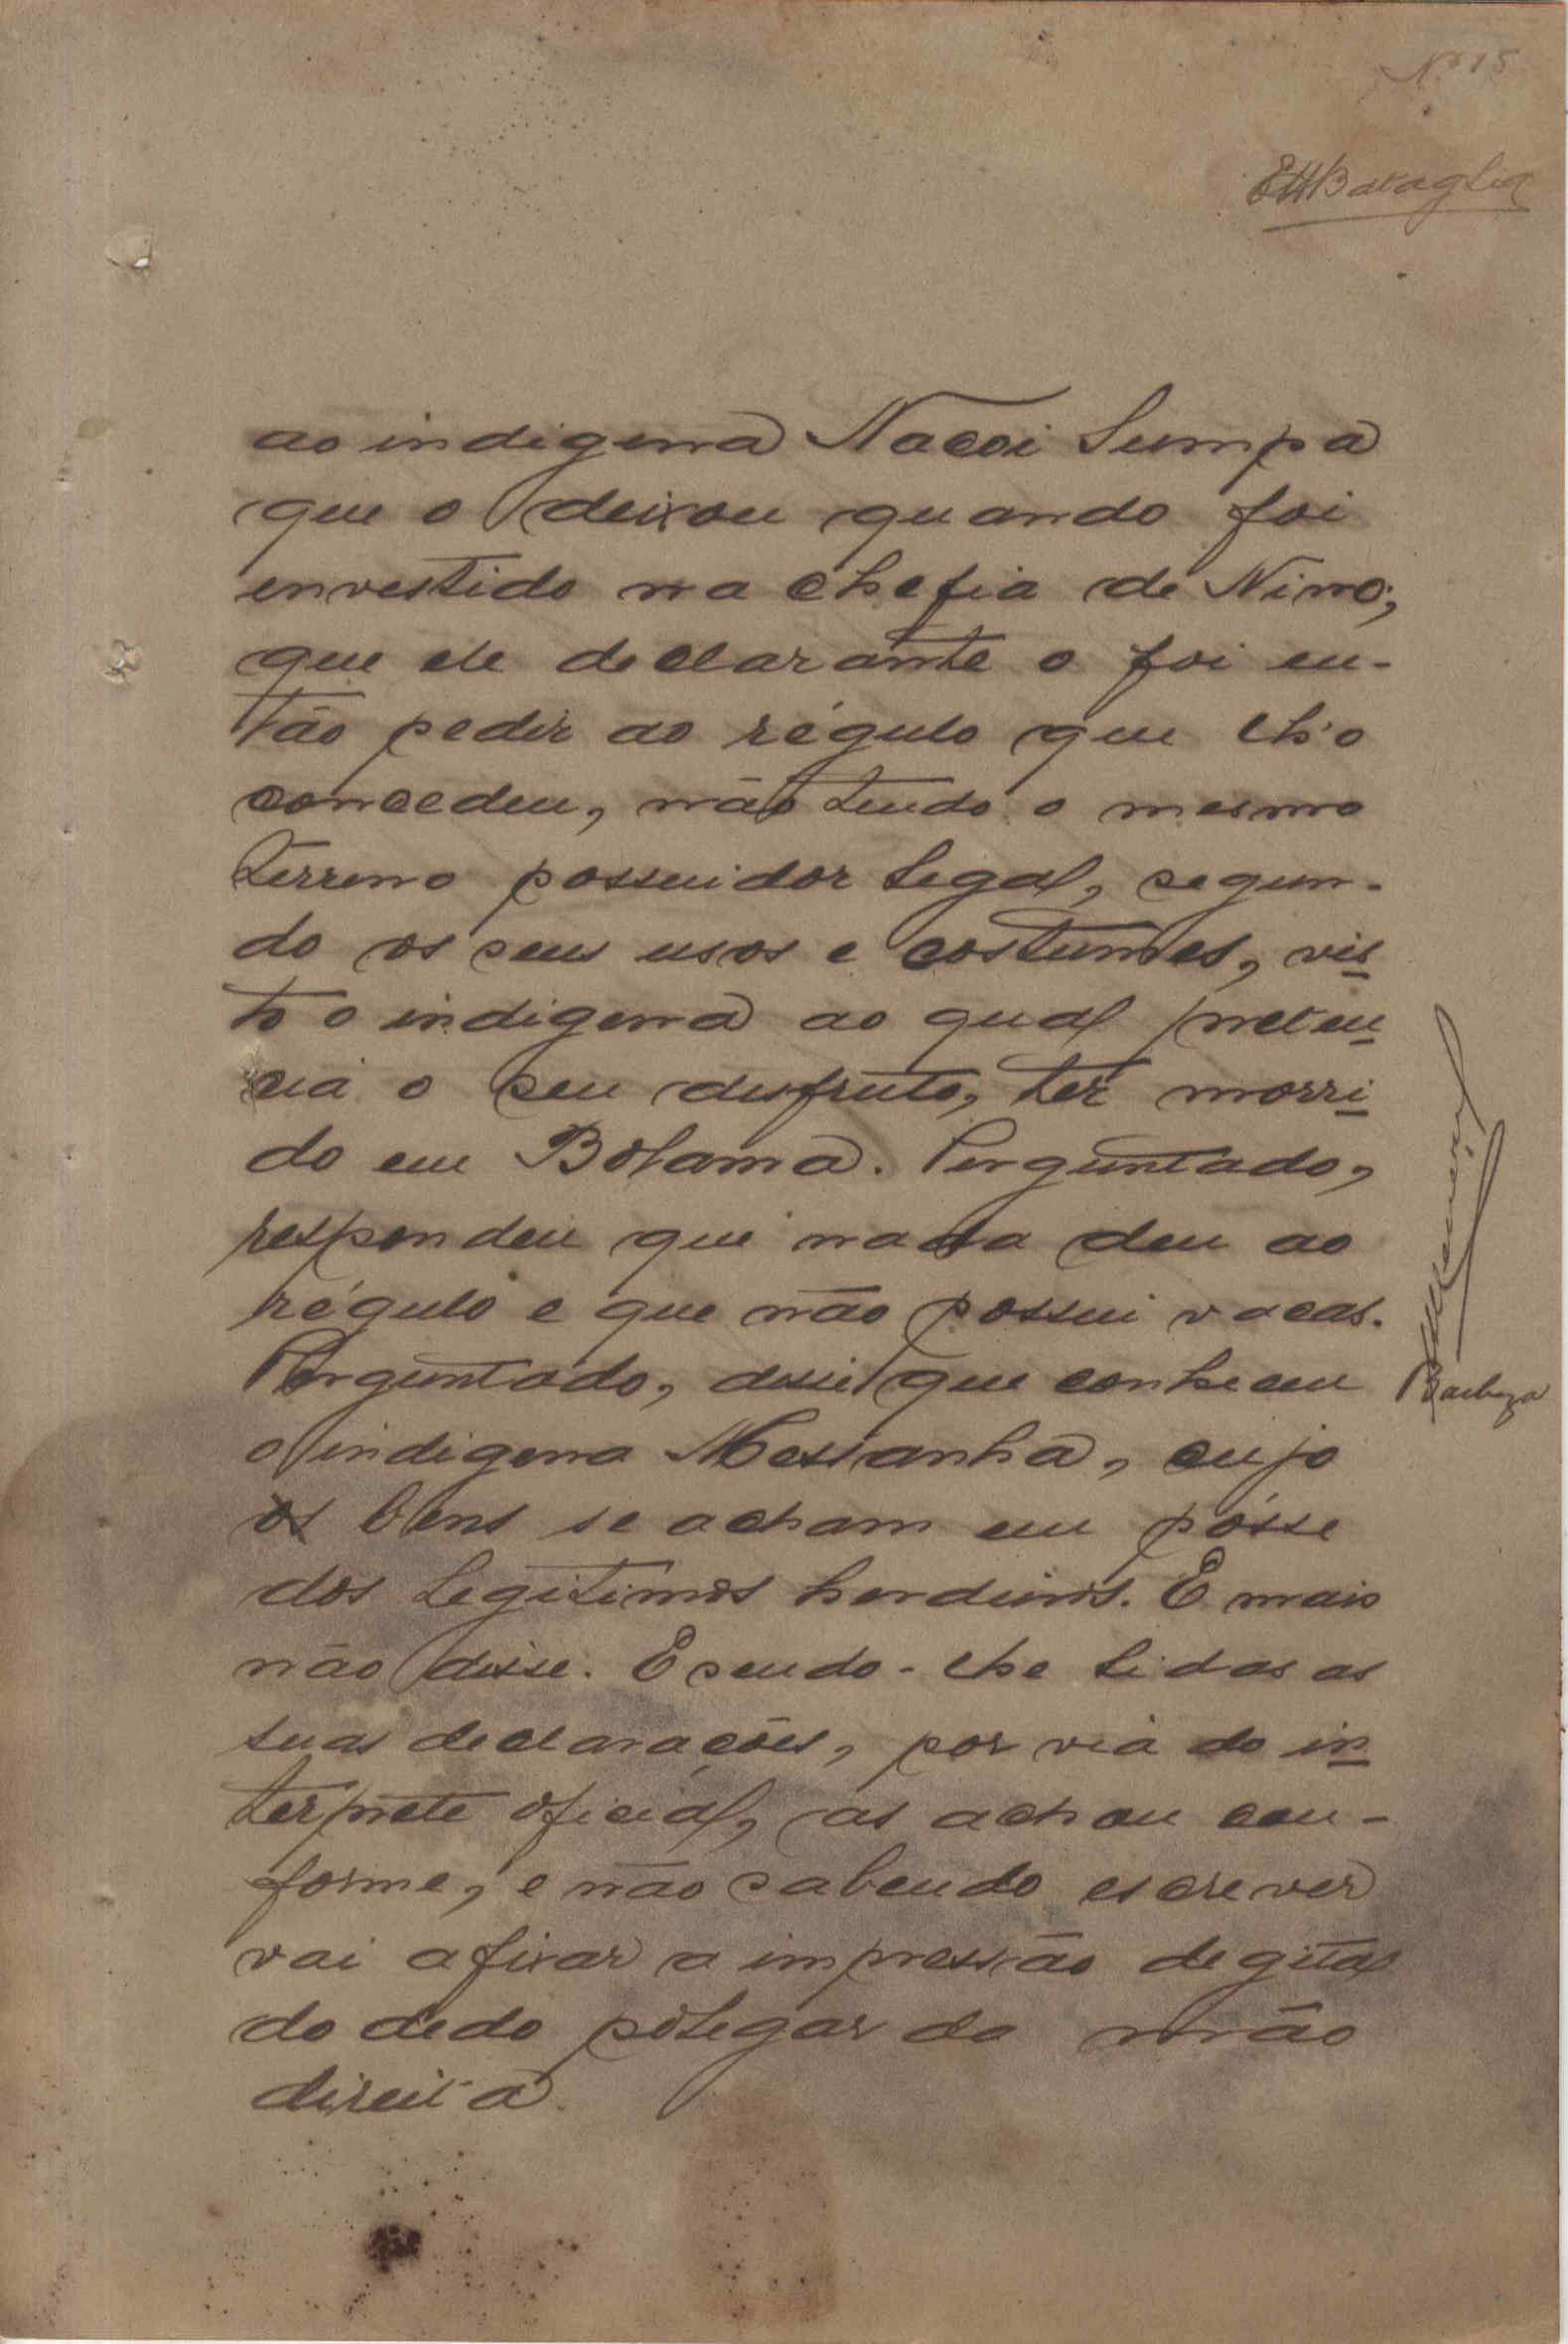 Nº 15
EHBataglia
ao indigena Nacoi Sumpa
que o deixou quando foi
envestido na chefia de Nimo;
que ele declarante o foi en-
tão pedir ao régulo que lh'o
concedeu, não tendo o mesmo
terreno possuidor legal, segun-
do os seus usos e costumes, vis
to o indigena ao qual preten
cia o seu disfruto, ter morri
do em Bolama. Perguntado,
respondeu que nada deu ao
régulo e que não possui vacas.
Perguntado, disse que conheceu
o indigena Messanha, cujo
os bens se acham em pósse
dos legitimos herdeiros. E mais
não disse. E sendo-lhe lidas as
suas declarações, por via do in
terprete oficial, as achou con-
forme, e não sabendo escrever
vai afixar a impressão degital
do dedo polegar da mão
direita
Barboza